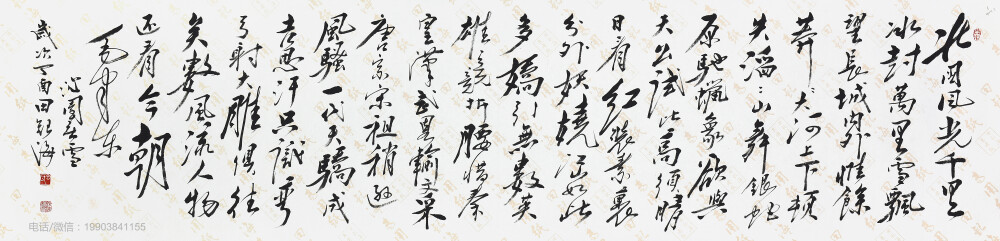 北国風光千里
冰封萬里雪飄
望長城内外惟餘
莽〻大河上下頓
失滔〻山舞銀蛇
原馳蠟象欲與
天公試比高須晴
日看紅裝素裹
分外妖嬈江山如此
多嬌引無數英
雄競折腰惜秦
皇漢武略輸文采
唐宗宋祖稍遜
風騷一代天驕成
吉思汗只識彎
弓射大雕俱往
矣數風流人物
還看今朝
毛澤東
沁園春雪
歲次丁酉田銀海
电话/微信：19903841155